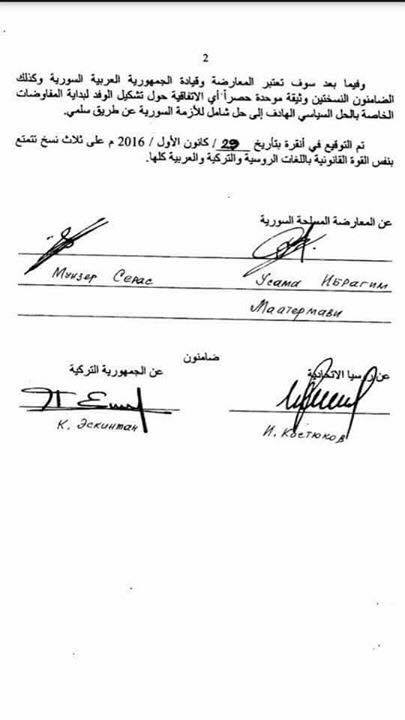 2
وفيما بعد سوف تعتبر المعارضة وقيادة الجمهورية العربية السورية وكذلك
الضامنون النسختين وثيقة موحدة حصراً أي الاتفاقية حول تشكيل الوفد لبداية المفاوضات
الخاصة بالحل السياسي الهادف إلى حل شامل للأزمة السورية عن طريق سلمي.
تم التوقيع في أنقرة بتأريخ 29 / كانون الأول / 2016 م على ثلاث نسخ تتمتع
بنفس القوة القانونية باللغات الروسية والتركية والعربية كلها.
عن المعارضة المسلحة السورية
Мунзер Серас
Усама Ибрагим
Маатермави
ضامنون
عن روسيا الاتحادية
عن الجمهورية التركية
К. Эскинтан
И. Костюков